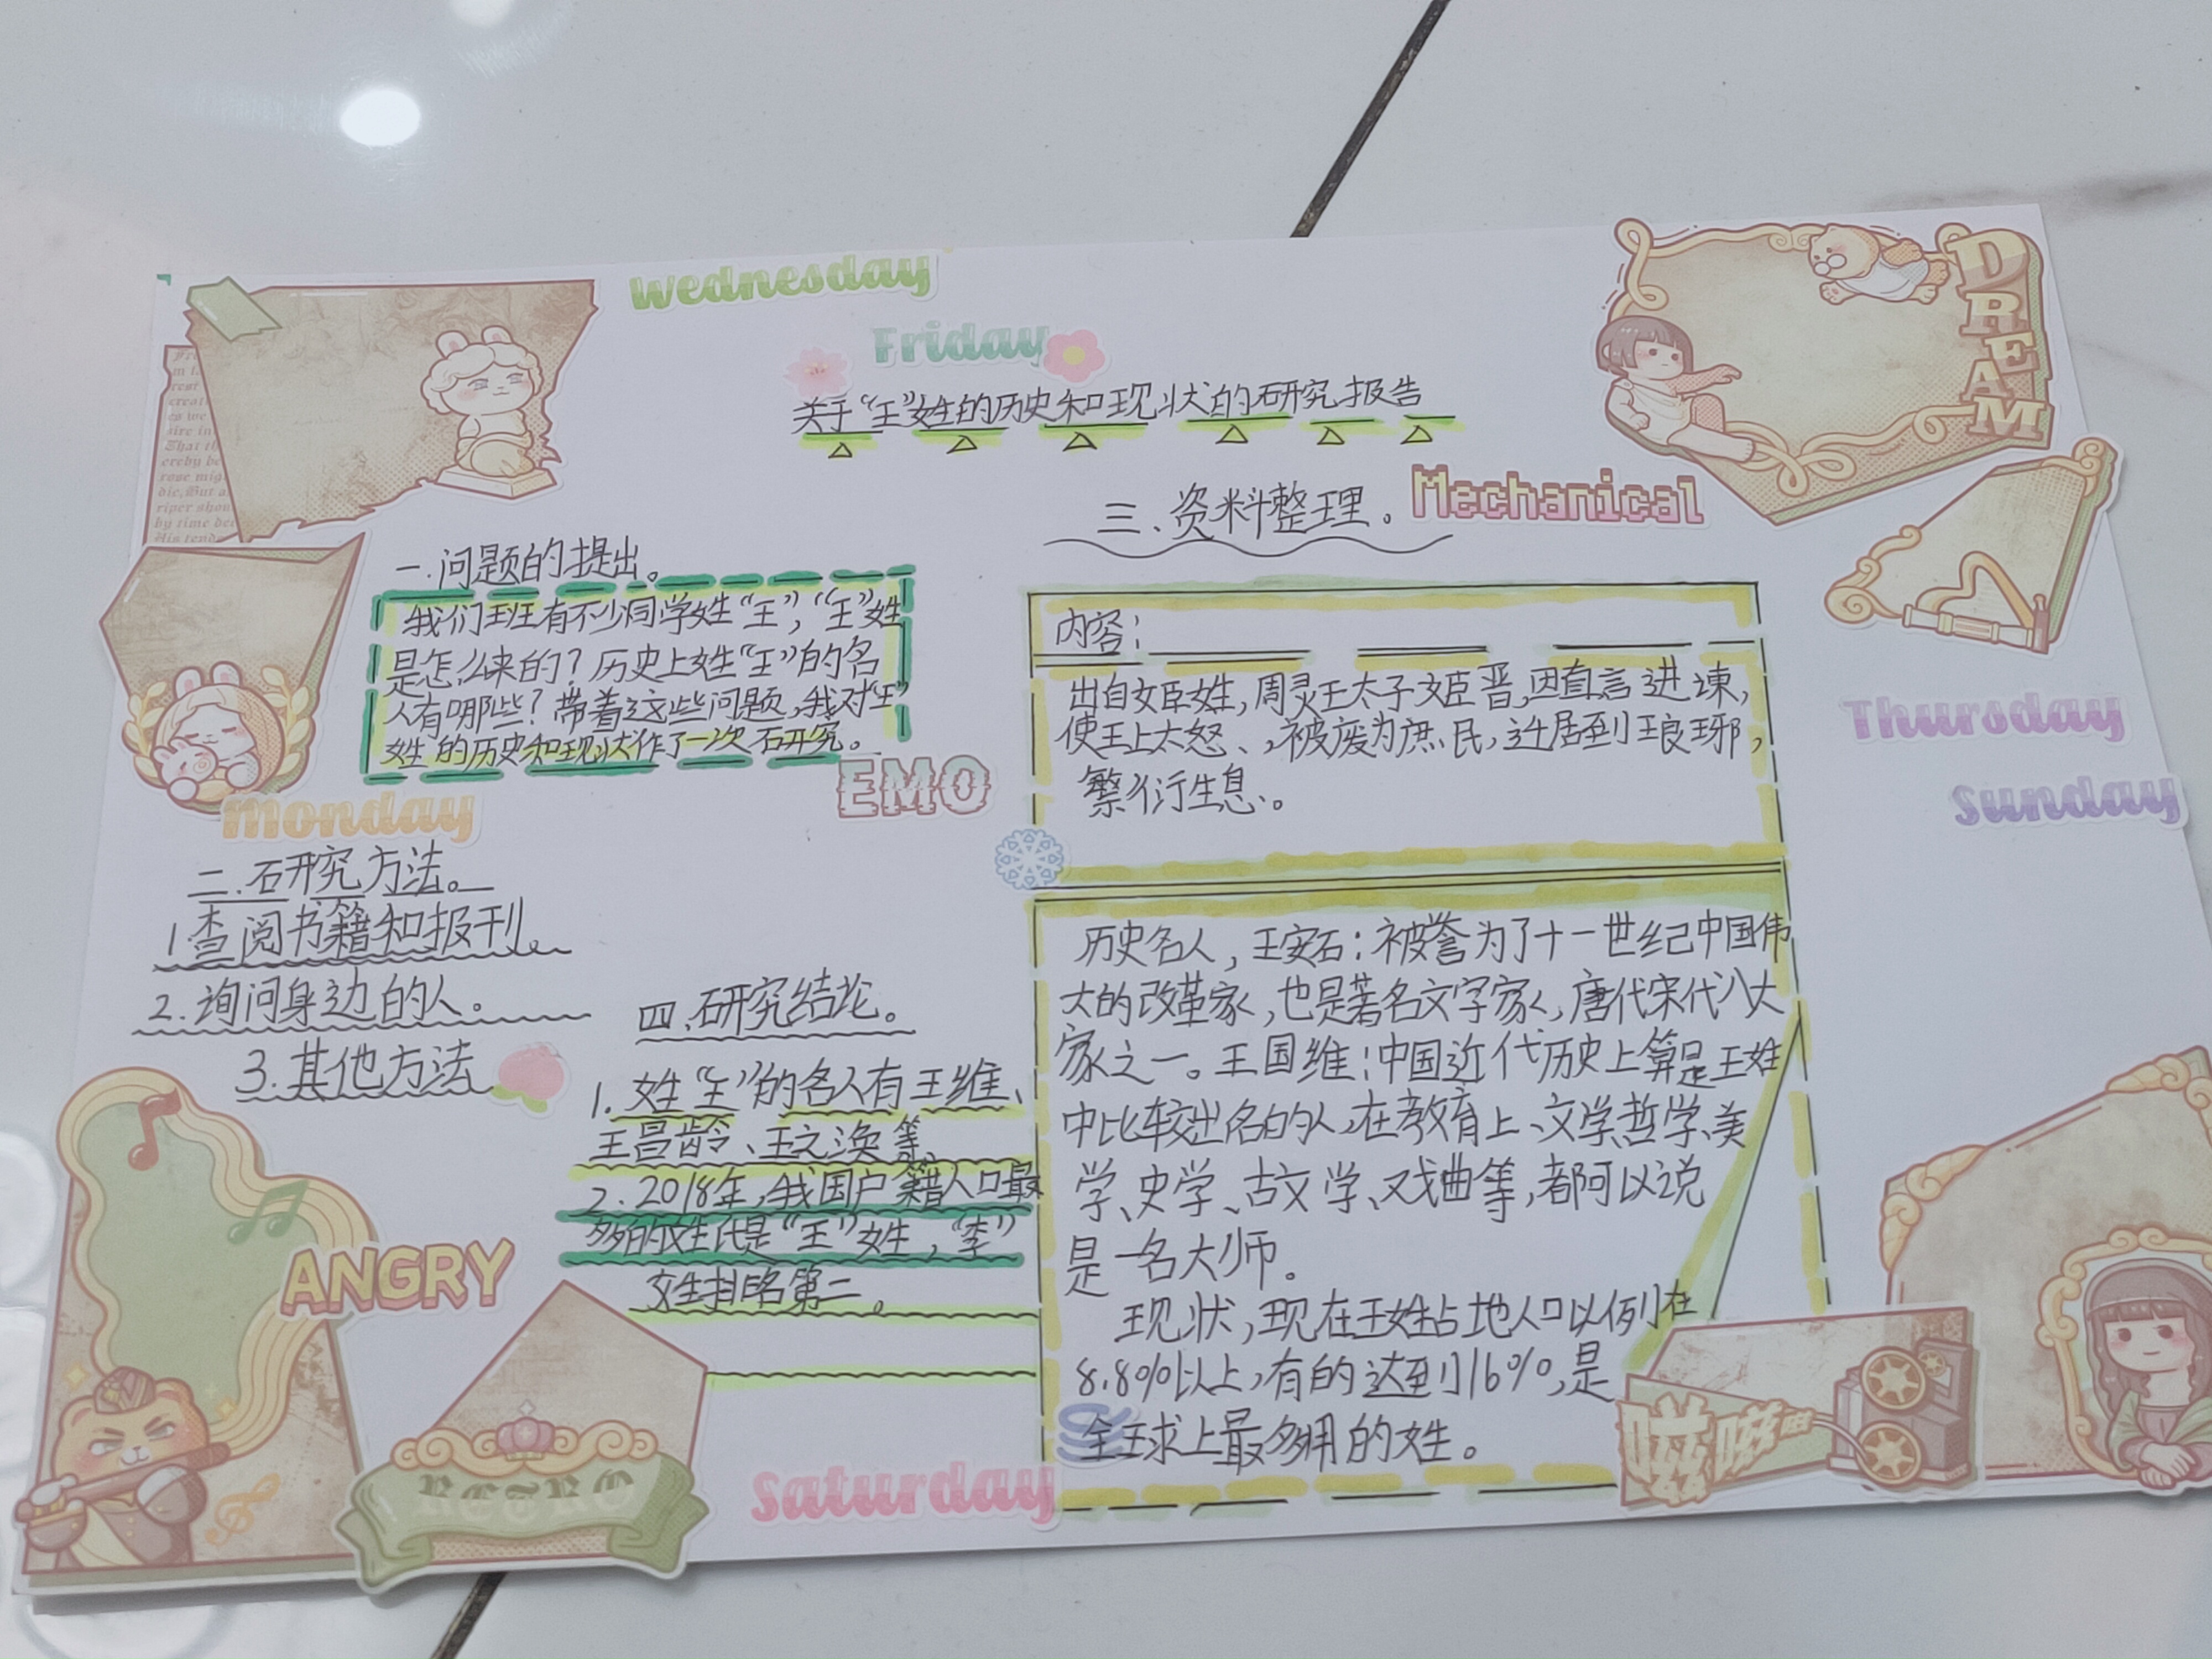 Wednesday
Friday
关于“王”姓的历史和现状的研究报告
DREAM
Mechanical
一.问题的提出。
我们班有不少同学姓“王”,“王”姓
是怎么来的?历史上姓“王”的名
人有哪些?带着这些问题,我对“王”
姓的历史和现状作了一次研究。
EMO
Monday
二.研究方法。
1.查阅书籍和报刊。
2.询问身边的人。
3.其他方法
三、资料整理。
内容:
出自姬姓,周灵王太子姬晋,因直言进谏,
使王上大怒、,被废为庶民,迁居到琅琊,
繁衍生息、。
历史名人,王安石:被誉为了十一世纪中国伟
大的改革家,也是著名文学家,唐代宋代八大
家之一。王国维:中国近代历史上算是王姓
中比较出名的人,在教育上、文学、哲学、美
学、史学、古文学、戏曲等,都可以说
是一名大师。
现状,现在王姓占地人口以例在
8.8%以上,有的达到16%,是
全球上最多用的姓。
四.研究结论。
1.姓“王”的名人有王维、
王昌龄、王之涣等、
2.2018年,我国户籍人口最
多的姓氏是“王”姓,“李”
姓排名第二。
Thursday
Sunday
ANGRY
RETRO
Saturday
嗞嗞